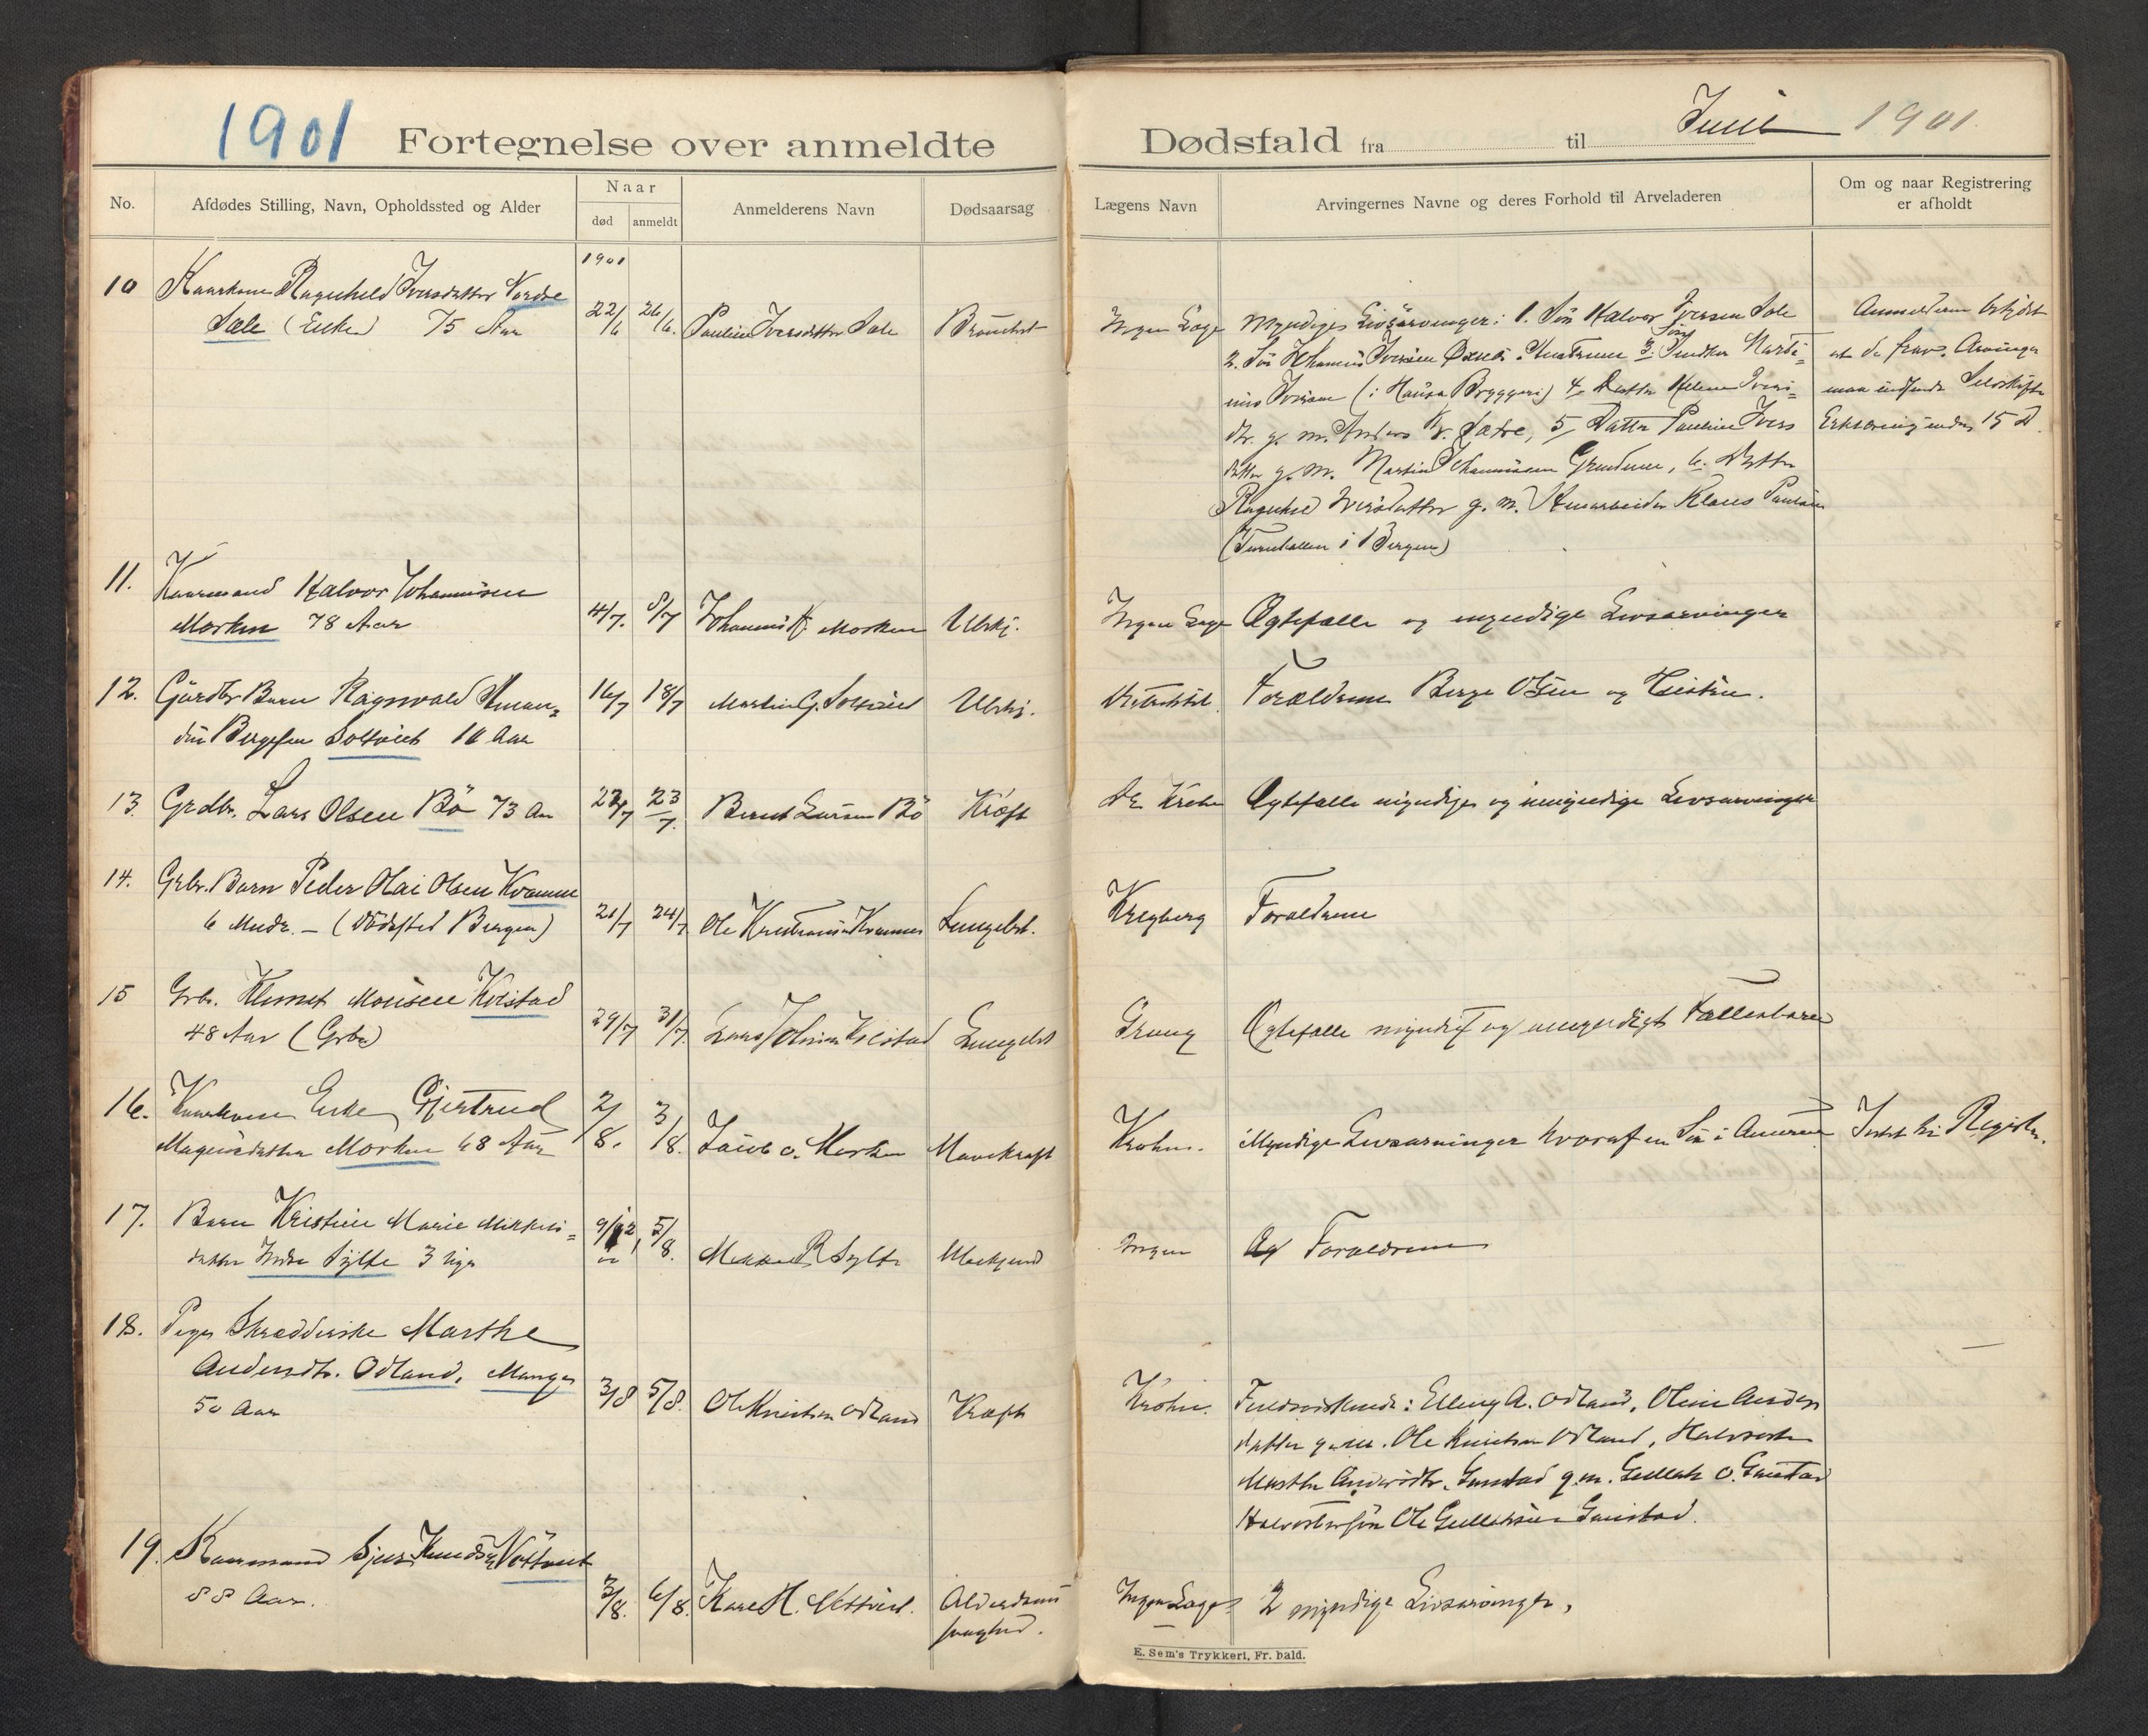 1901 Fortegnelse over anmeldte Dødsfald fra til Juni 1901.
No. Afdødes Stilling, Navn, Opholdssted og Alder
Naar
død anmeldt
Anmelderens Navn
Dødsaarsag
Lægens Navn
Arvingernes Navne og deres Forhold til Arveladeren
Om og naar Registrering
er afholdt
1901
10 Kaarkone Ragnhild Iversdatter Nordre
Sæle (Enke) 75 Aar
22/6 26/6.
Pauline Iversdatter Sæle
Ingen Læge
Myndige Livsarvinger: 1. Søn Halvor Iversen Sæle
2. Søn Johannes Iversen 3. Søn
(i Hansa Bryggeri) 4 Datter Helene Ivers=
dtr. g. m. Anders Sætre, 5, Datter Pauline Ivers
datter g. m. Martin Johannesen 6. Datter
Ragnhild Iversdatter g. m. Klaus Paulsen
(Turnhallen i Bergen)
Anmelderen
at de frav. Arvinger
maa indsende Selvskifte
Erklæring inden 15 D.
11. Kaarmand Halvor Johannisen
Morken 78 Aar
4/7. 8/7
Johannes H. Morken
Ubekj.
Ingen Læge
Ægtefælle og myndige Livsarvinger
12. Gårdbr Barn Ragnvald Aman=
din Bergesen Soltvedt 10 Aar
16/7 18/7
Martin G. Soltvedt
Ubekj.
Forældrene Berge Olsen og
13. Grdbr. Lars Olsen Bö 73 Aar
23/7
Bernt Larsen Bö
Kræft
Dr Krohn
Ægtefælle myndige og umyndige Livsarvinger
14. Grbr. Barn Peder Olai Olsen Kvamme
6 Mndr. – (Dödssted Bergen)
21/7 24/7
Ole Kristiansen Kvamme
Lungebet.
Kreyberg
Forældrene
15 Grbr. Monsen Kvistad
48 Aar (Grbr)
29/7 31/7
Lars Johnsen Kvistad
Lungebet
Grung
Ægtefælle myndig og umyndigt Fællesbarn
16. Kaarkone Enke Gjertrud
Magnesdatter Morken 68 Aar
2/8. 3/8.
Jacob O. Morken
Mavekræft
Krohn.
Myndige Livsarvinger hvoraf en Søn i Amerika
Intet til Registr.
17. Barn Kristine Marie Mikkels=
datter Indre Sylte 3 Uger
5/8.
Mikkel R Sylte
Ubekjend
Ingen
Forældrene
18. Pige Skrædderske Marthe
Andersdtr. Odland, Manger
50 Aar
3/8 5/8.
Ole Knutsen Odland
Kræft
Krohn.
Fuldsøskende: Elling A. Odland, Oline Anders
datter g. m. Ole Knutsen Odland, Halvsøster
Marthe Andersdtr. g. m. Gullak O.
Halvsøstersøn Ole Gullaksen
19. Kaarmand Sjur Knudsen
88 Aar.
3/8. 6/8.
Alderdoms
svaghed.
Ingen Læge
2 myndige Livsarvinger,
E. Sem's Trykkeri, Fr. hald.